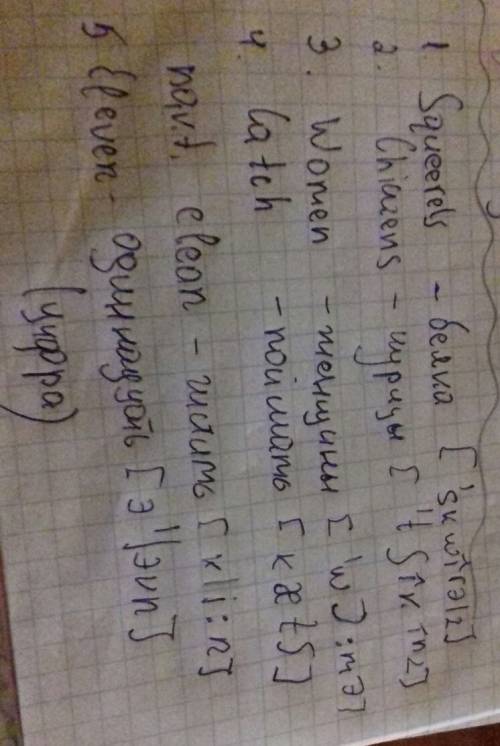 1. Squeerels - белка ['skwIrəlz]
2. Chickens - курицы ['tʃIk.Inz]
3. Women - женщины
4. Catch - поймать [kætʃ]
clean - чистить [kli:n]
5 Eleven - одиннадцать
(цифра)